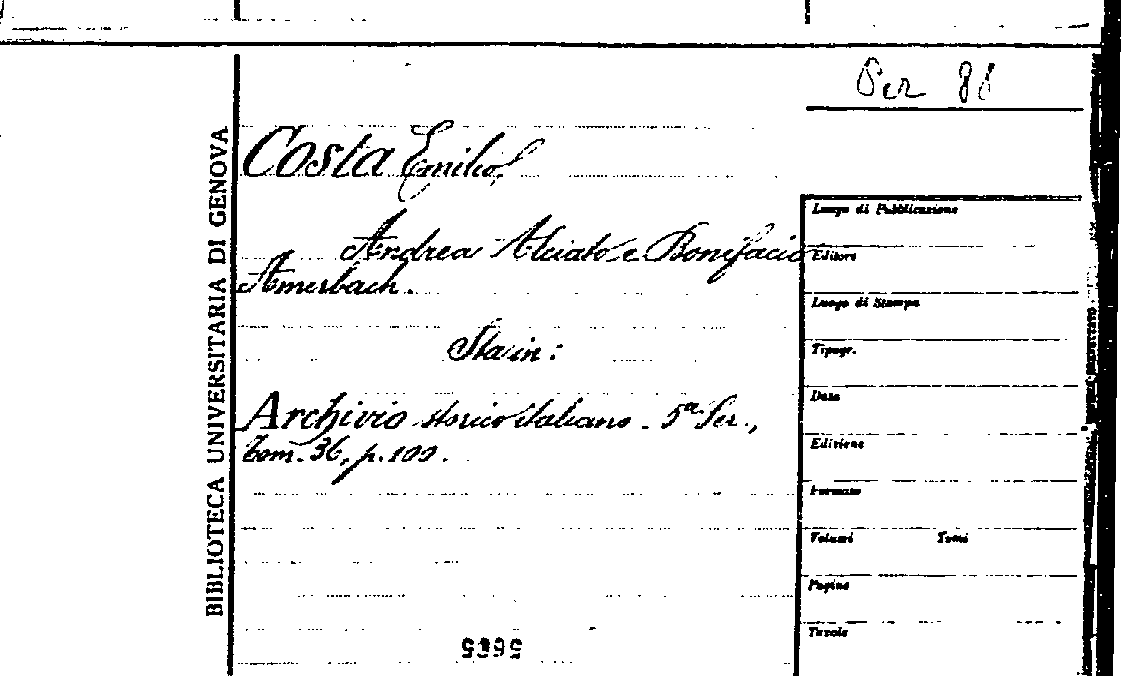 Per 88
BIBLIOTECA UNIVERSITARIA DI GENOVA
Costa Emilio,
Andrea Alciato e Bonifacio
Amerbach.
Sta in:
Archivio storico italiano. 5ª Ser.,
Tom. 36, p. 100.
Luogo di Pubblicazione
Editore
Luogo di Stampa
Tipogr.
Data
Edizione
Formato
Volumi Tomi
Pagine
Tavole